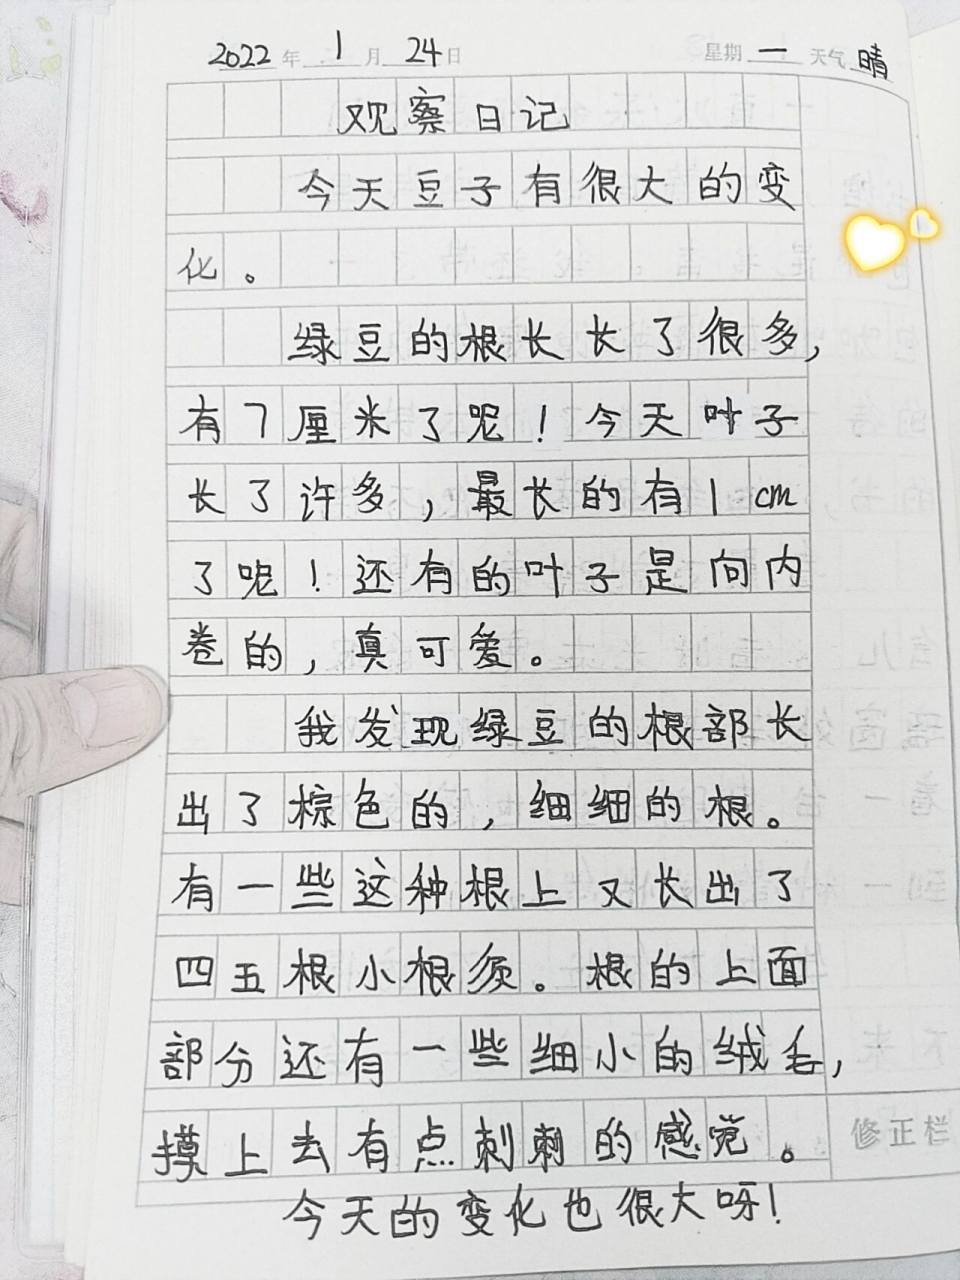 2022年1月24日 星期一 天气晴
观察日记
今天豆子有很大的变
化。
绿豆的根长长了很多,
有7厘米了呢!今天叶子
长了许多,最长的有1cm
了呢!还有的叶子是向内
卷的,真可爱。
我发现绿豆的根部长
出了棕色的,细细的根。
有一些这种根上又长出了
四五根小根须。根的上面
部分还有一些细小的绒毛,
摸上去有点刺刺的感觉。
修正栏
今天的变化也很大呀!